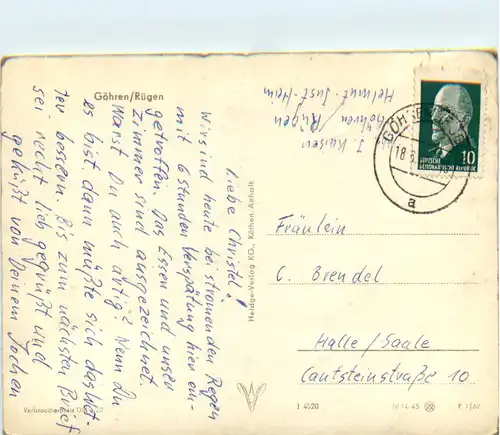 Göhren/Rügen
Liebe Christel!
Wir sind heute bei strömenden Regen
mit 6 Stunden Verspätung hier ein-
getroffen. Das Essen und unser
Zimmer sind ausgezeichnet
Warst Du auch artig? Wenn Du
es bist, dann müßte sich das Wet-
ter bessern. Bis zum nächsten Brief
sei recht lieb gegrüßt und
geküßt von Deinem Jochen
J. Kaiser
Göhren / Rügen
Helmut-Just-Heim
GÖHREN
18.
a
DEUTSCHE
DEMOKRATISCHE REPUBLIK
10
Fräulein
C. Brendel
Halle/Saale
Cantsteinstraße 10
Heldge-Verlag KG., Köthen-Anhalt
Verbraucherpreis
J 4020
IV-14-45
P 1/62